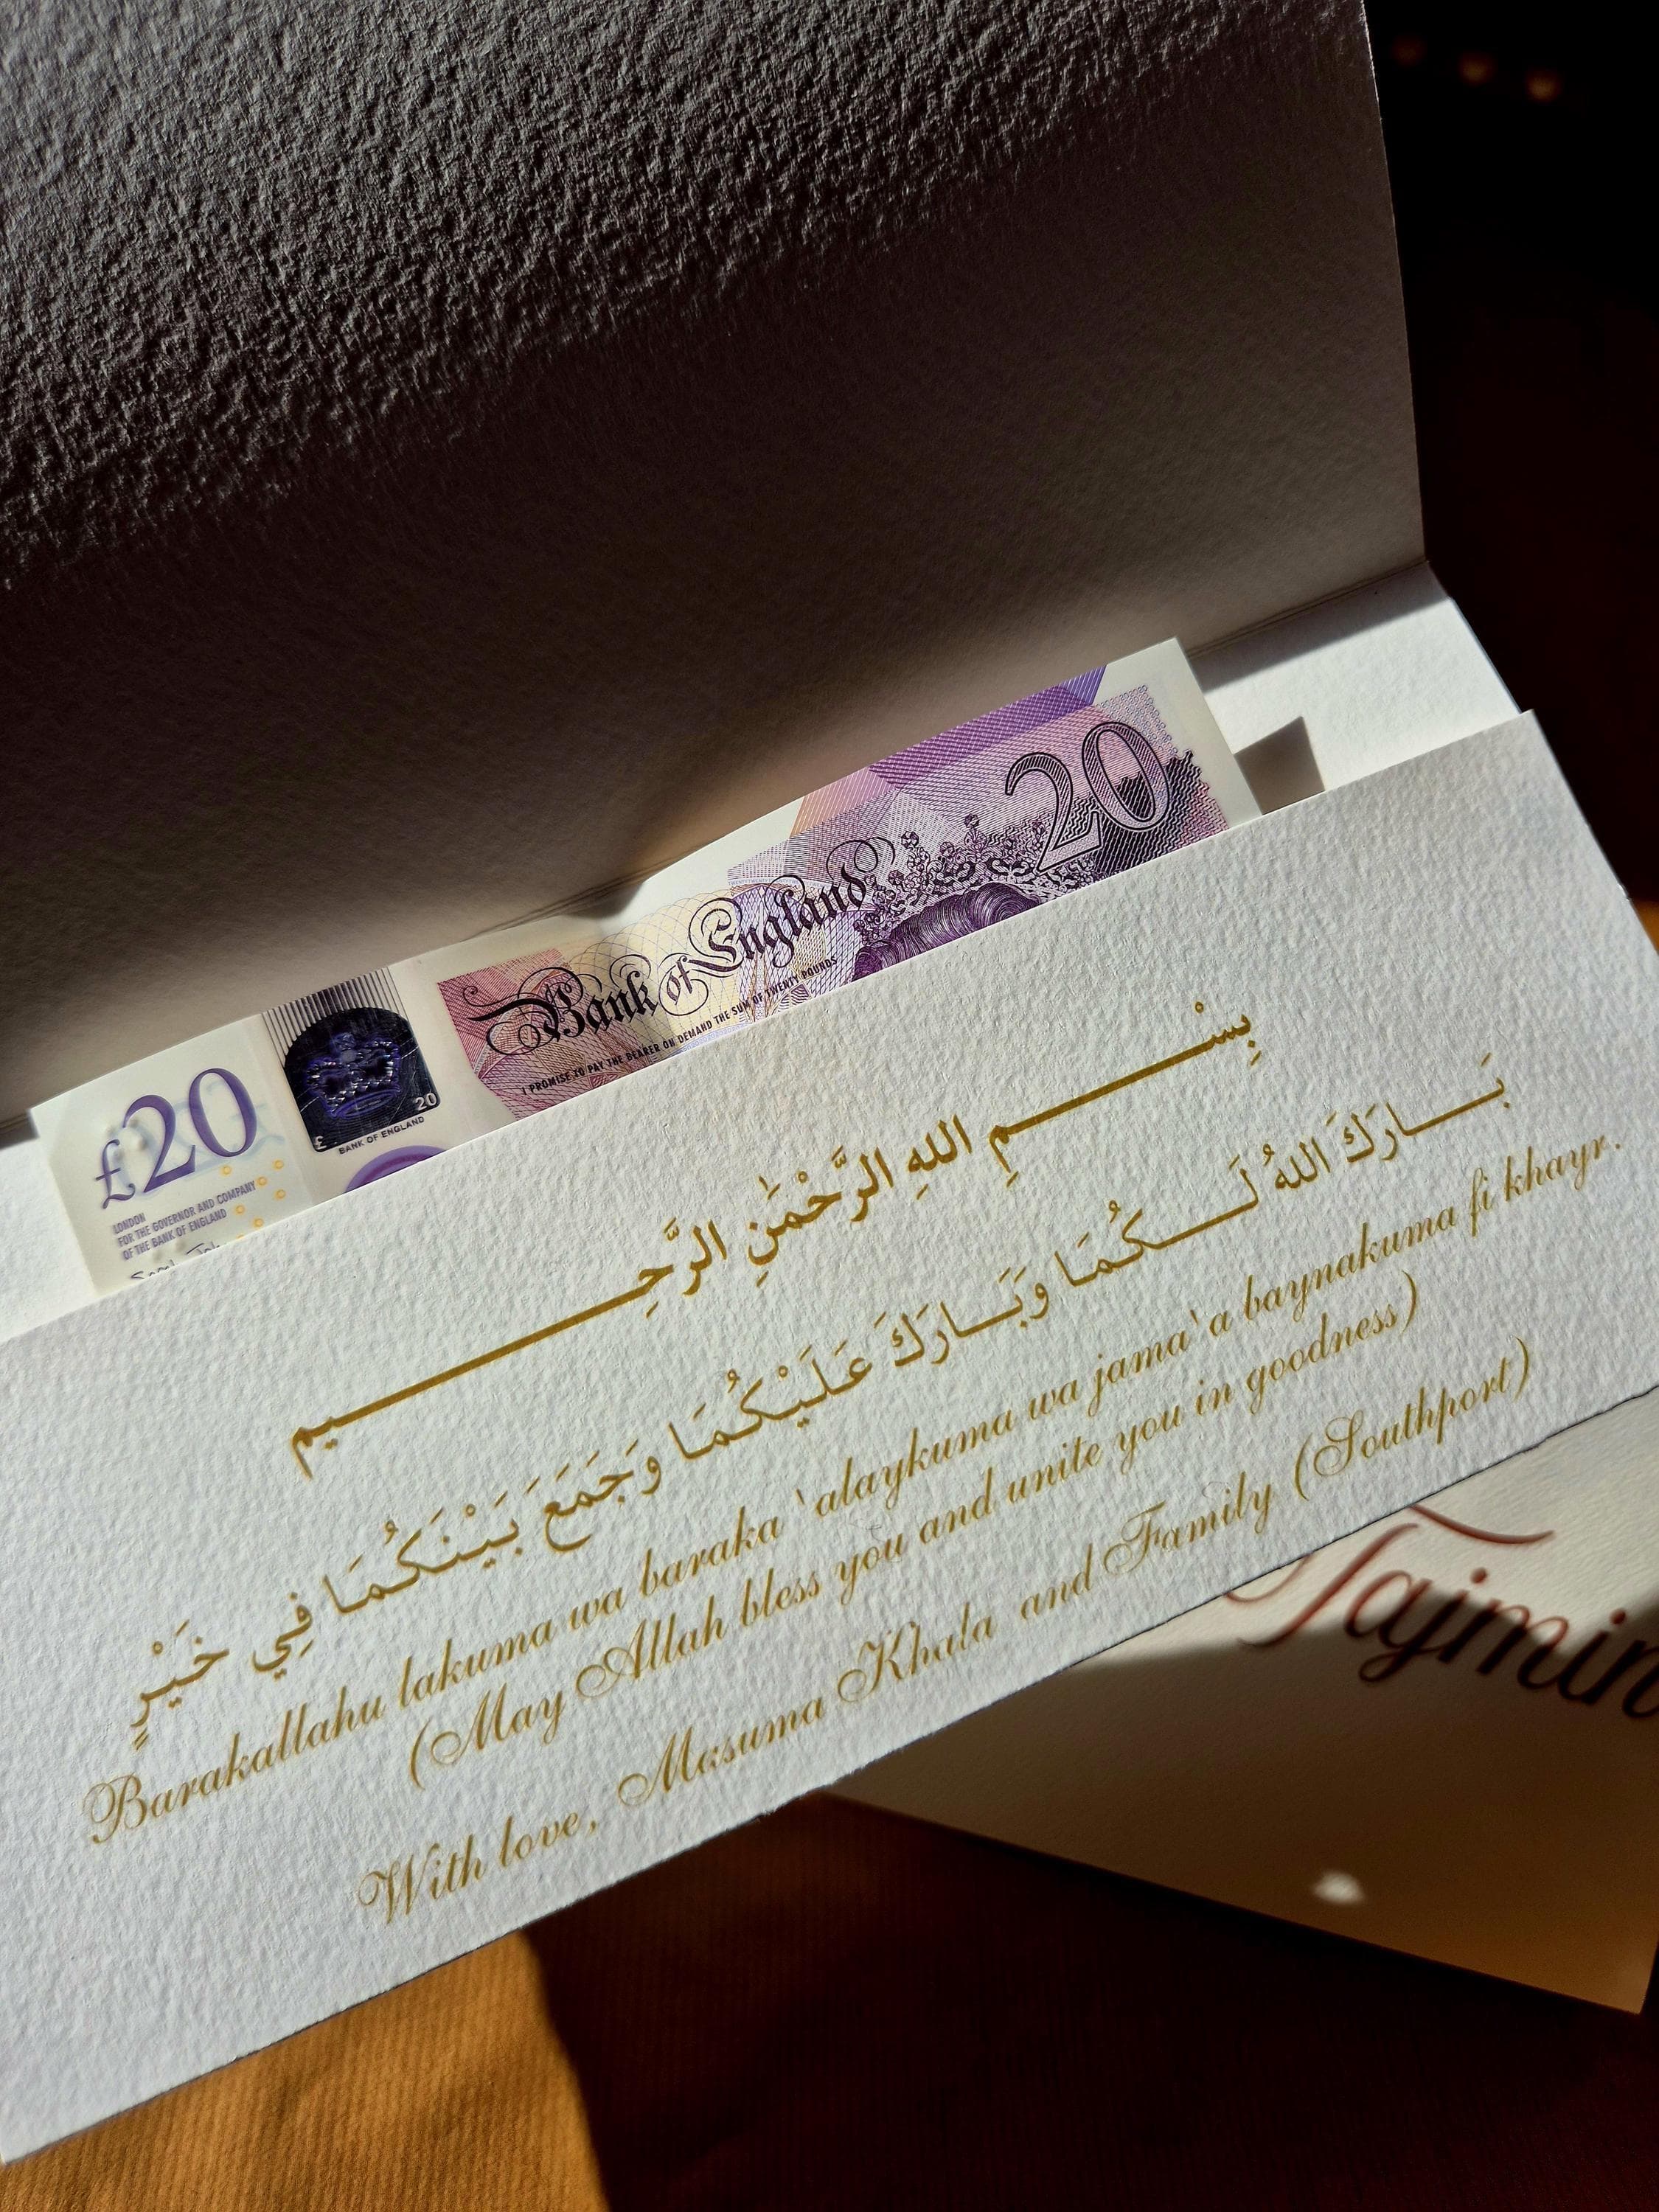 20
Bank of England
I PROMISE TO PAY THE BEARER ON DEMAND THE SUM OF TWENTY POUNDS
£20
20
£
BANK OF ENGLAND
LONDON
FOR THE GOVERNOR AND COMPANY
OF THE BANK OF ENGLAND
بِسْمِ اللهِ الرَّحْمٰنِ الرَّحِيم
بَارَكَ اللهُ لَكُمَا وَبَارَكَ عَلَيْكُمَا وَجَمَعَ بَيْنَكُمَا فِي خَيْرٍ
Barakallahu lakuma wa baraka 'alaykuma wa jama'a baynakuma fi khayr.
(May Allah bless you and unite you in goodness)
With love, Masuma Khala and Family (Southport)
Tajmin